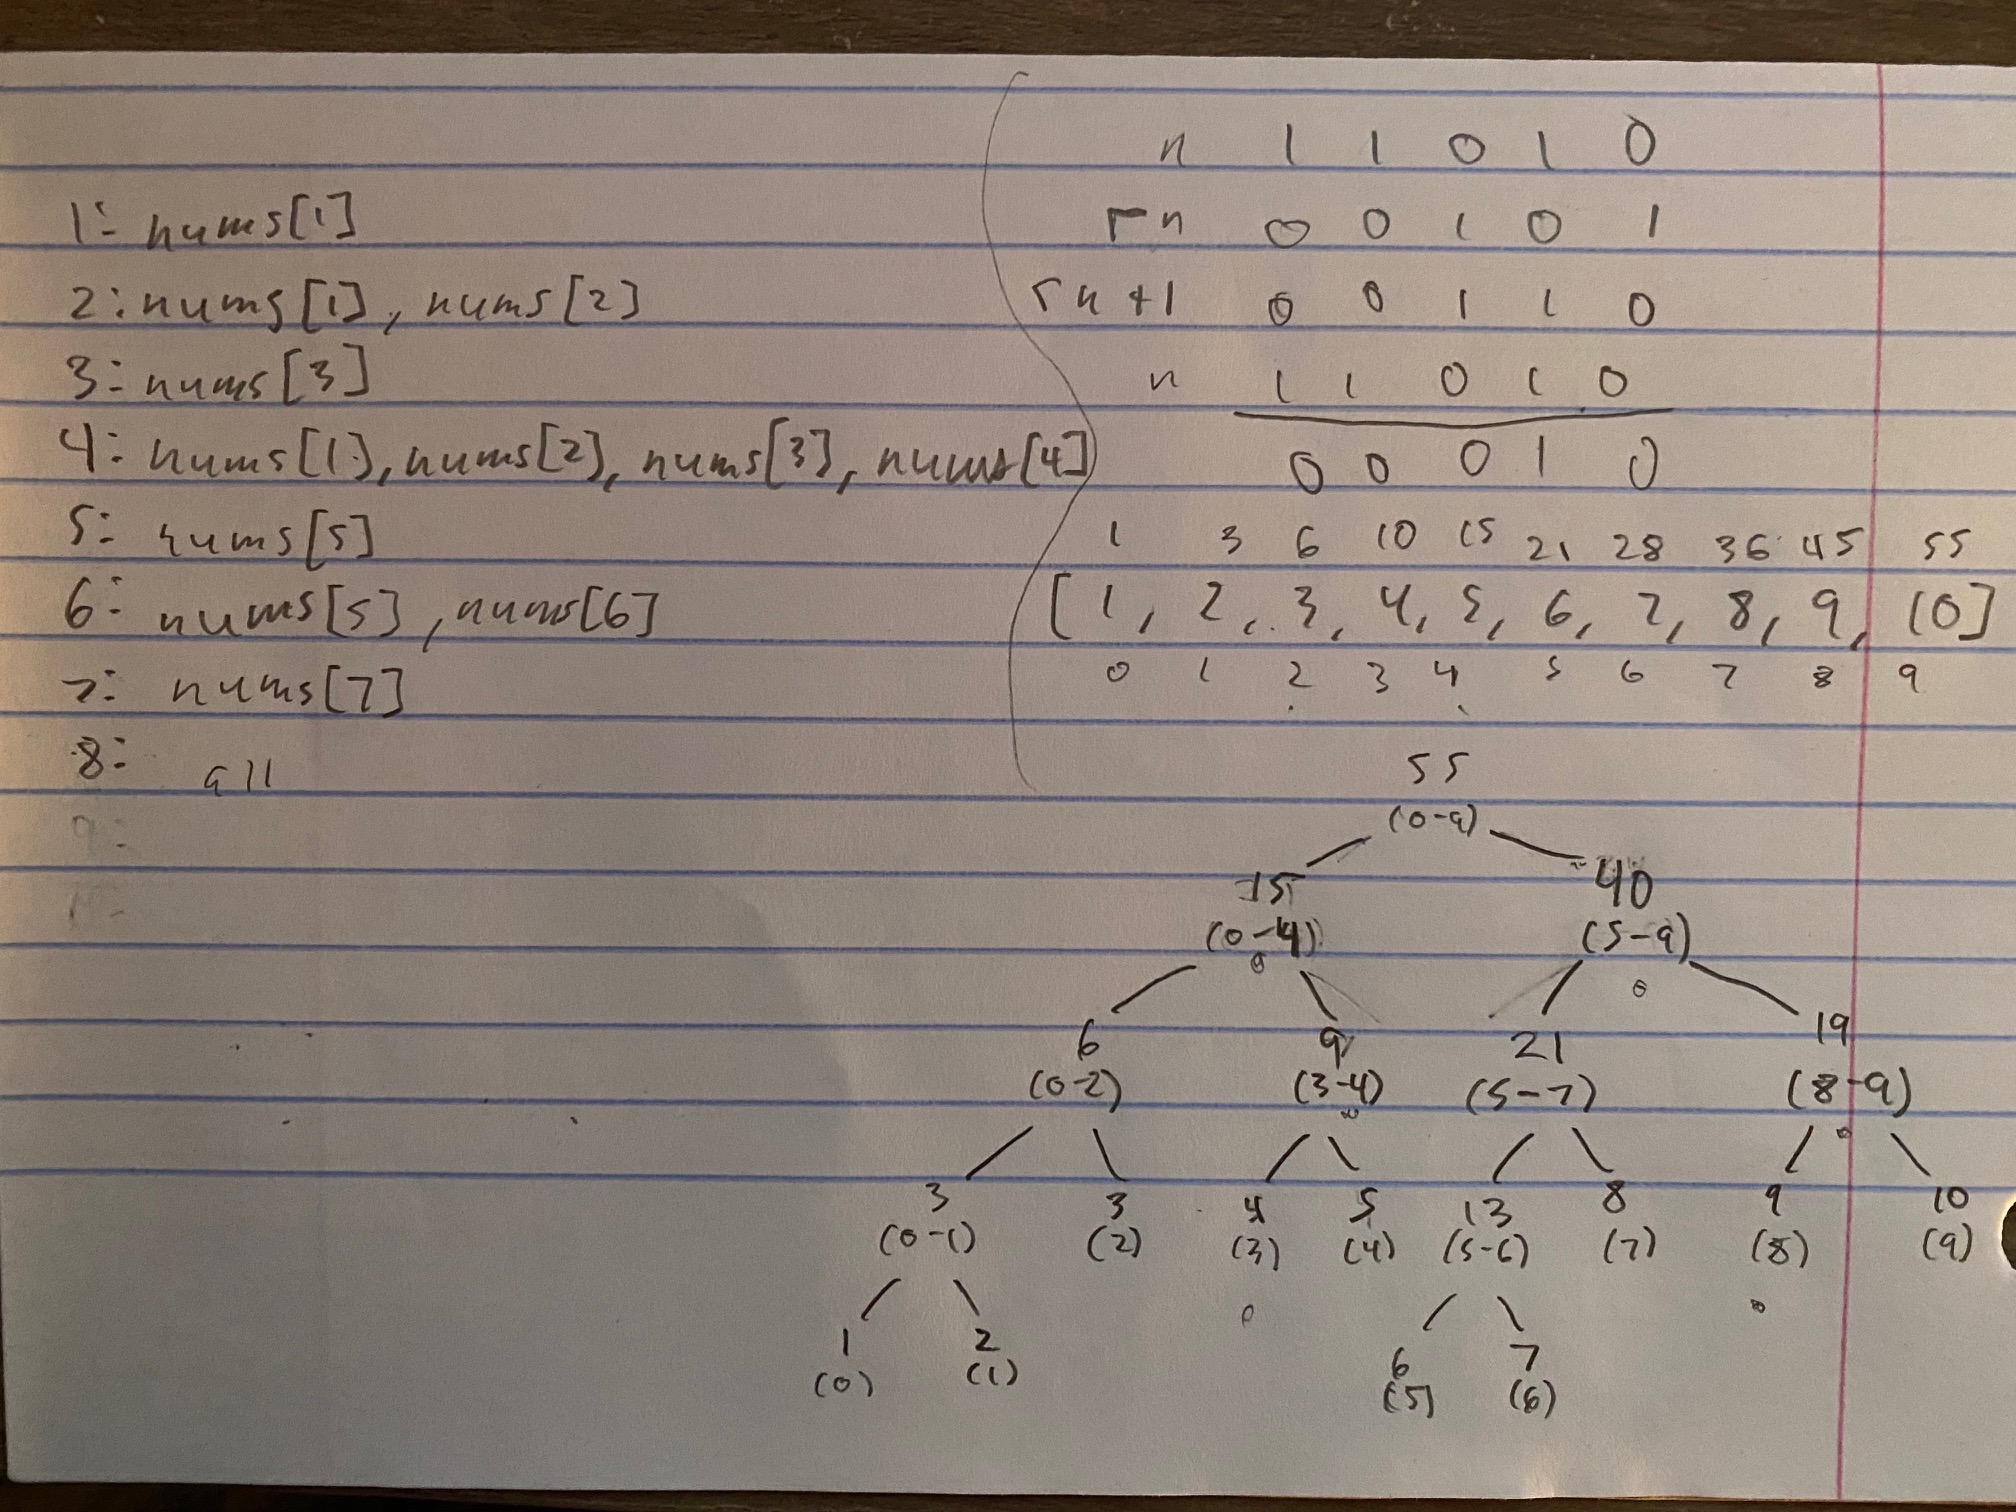 1: nums[1]
2: nums[1], nums[2]
3: nums[3]
4: nums[1], nums[2], nums[3], nums[4]
5: nums[5]
6: nums[5], nums[6]
7: nums[7]
8: all
9:
n 1 1 0 1 0
rn 0 0 1 0 1
rn+1 0 0 1 1 0
n 1 1 0 1 0
0 0 0 1 0
1 3 6 10 15 21 28 36 45 55
[1, 2, 3, 4, 5, 6, 7, 8, 9, 10]
0 1 2 3 4 5 6 7 8 9
55
(0-9)
15 40
(0-4) (5-9)
6 9 21 19
(0-2) (3-4) (5-7) (8-9)
3 3 4 5 13 8 9 10
(0-1) (2) (3) (4) (5-6) (7) (8) (9)
1 2 6 7
(0) (1) (5) (6)